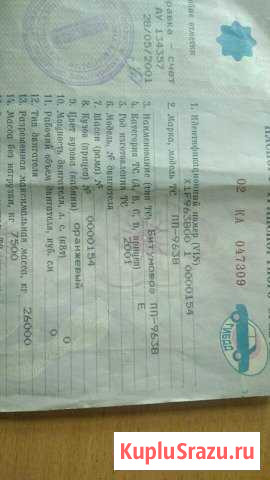 02 КА 047309
ГИБДД
1. Идентификационный номер (VIN)
X1F963800 1 0000154
2. Марка, модель ТС ПП-9638
3. Наименование (тип ТС) Битумовоз ПП-9638
4. Категория ТС (A, B, C, D, прицеп) E
5. Год изготовления ТС 2001
6. Модель, № двигателя
7. Шасси (рама) №
8. Кузов (прицеп) № 0000154
9. Цвет кузова (кабины) оранжевый
10. Мощность двигателя, л. с. (кВт) 0
11. Рабочий объем двигателя, куб. см 0
12. Тип двигателя
13. Разрешенная максимальная масса, кг 26000
14. Масса без нагрузки, кг 7500
отметки
равка - счет
АУ 134357
28/05/2001
KupluSrazu.ru